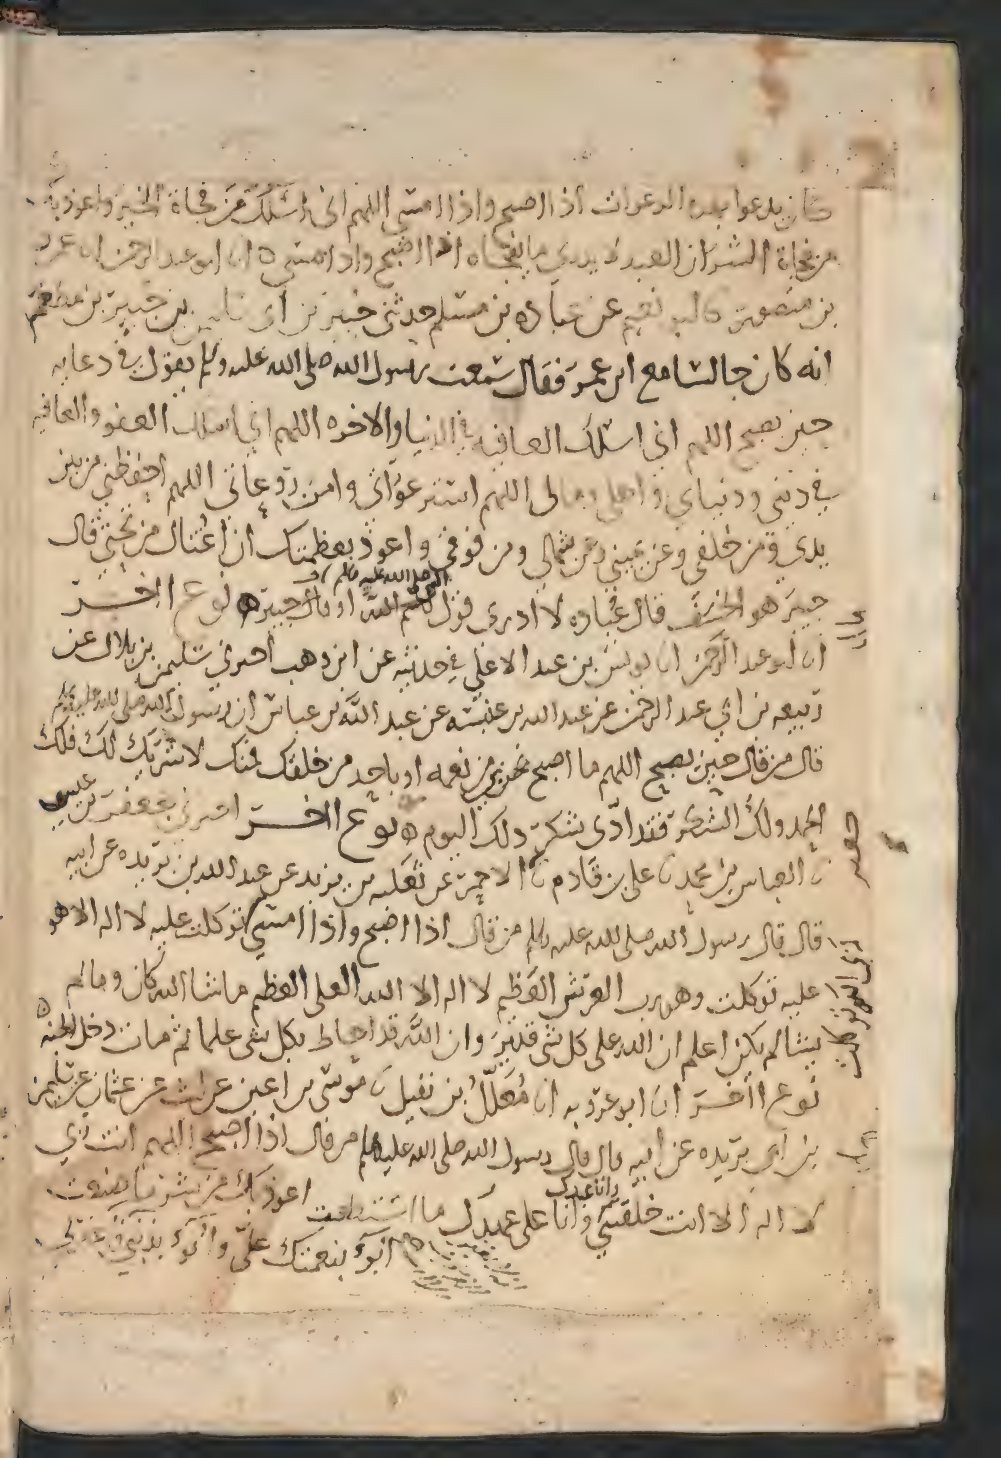 كان يدعوا بهذه الدعوات اذا اصبح واذا امسى اللهم انى اسئلك من فجاة الخير واعوذ بك
من فجاة الشر ان العبد لا يدرى ما يفجاه اذا اصبح واذا امسى ان ابو عبد الرحمن ان عمرو
بن منصور ابو نعيم عن عباده بن مسلم حدثنى جبير بن ابى سليمن بن جبير بن مطعم
انه كان جالسا مع ابن عمر فقال سمعت رسول الله صلى الله عليه وسلم يقول فى دعايه
حين يصبح اللهم انى اسئلك العافيه فى الدنيا والاخره اللهم انى اسئلك العفو والعافيه
فى دينى ودنياى واهلى ومالى اللهم استر عوراتى وامن روعاتى اللهم احفظنى من بين
يدى ومن خلفى وعن يمينى وعن شمالى ومن فوقى واعوذ بعظمتك ان اغتال من تحتى قال
جبير هو الخسف قال عباده لا ادرى قول النبى صلى الله عليه وسلم او قول جبير نوع اخر
ان ابو عبد الرحمن ان يونس بن عبد الاعلى فى حديثه عن ابن وهب اخبرنى سليمن بن بلال عن
ربيعه بن ابى عبد الرحمن عن عبد الله بن عنبسه عن عبد الله بن عباس ان رسول الله صلى الله عليه وسلم
قال من قال حين يصبح اللهم ما اصبح بى من نعمه او باحد من خلقك فمنك لا شريك لك فلك
الحمد ولك الشكر فقد ادى شكر ذلك اليوم نوع اخر اخبرنى جعفر بن عيسى
العباس بن محمد على بن قادم الاحمر عن ثعلبه بن يزيد عن عبد الله بن بريده عن ابيه
قال قال رسول الله صلى الله عليه وسلم من قال اذا اصبح واذا امسى توكلت عليه لا اله الا هو
عليه توكلت وهو رب العرش العظيم لا اله الا الله العلى العظيم ماشا الله كان وما لم
يشا لم يكن اعلم ان الله على كل شى قدير وان الله قد احاط بكل شى علما ثم مات دخل الجنه
نوع اخر ان ابو عروبه ان معلل بن نفيل موسى بن اعين عن ليث عن عثمان عن سليمن
بن ابى بريده عن ابيه قال قال رسول الله صلى الله عليه وسلم من قال اذا اصبح اللهم انت ربى
لا اله الا انت خلقتنى وانا عبدك وانا على عهدك ما استطعت اعوذ بك من شر ما صنعت
ابوء بنعمتك على وابوء بذنبى فاغفر لى